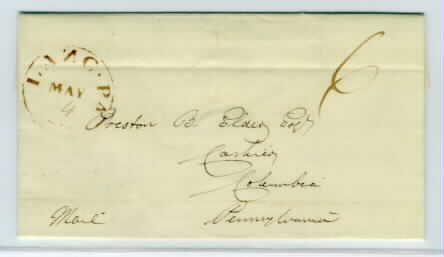 MAY
4
6
Preston B. Elder Esqr
Cashier
Columbia
Mail
Pennsylvania